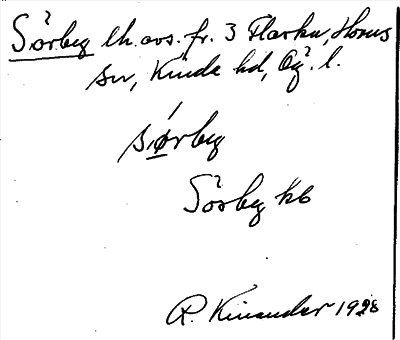 Sörby lh. avs. fr. 3 Flarka, Horns
sn, Kinda hd, Ög. l.
sǿrby
Sörby kb
R. Kinander 1928